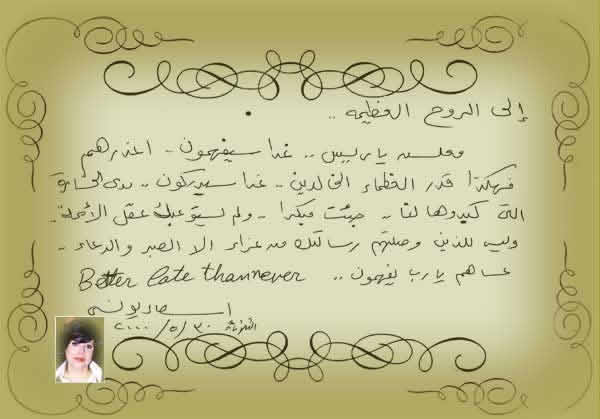 إلى الروح العظيمة ..
معلش يا ريس .. غدا سيفهمون .. اعذرهم
فهكذا قدر العظماء الخالدين .. غدا سيدركون .. مدى الخسارة
التى كبدوها لنا .. جئت مبكرا .. ولم يستوعبك عقل الأمة ..
وليس للذين وصلتهم رسالتك من عزاء إلا الصبر والدعاء ..
عساهم يا رب يفهمون .. Better late than never
٢٠٠٠/٥/٣٠